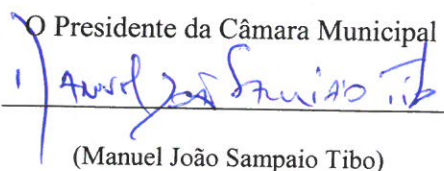 O Presidente da Câmara Municipal
Manuel João Sampaio Tibo
(Manuel João Sampaio Tibo)